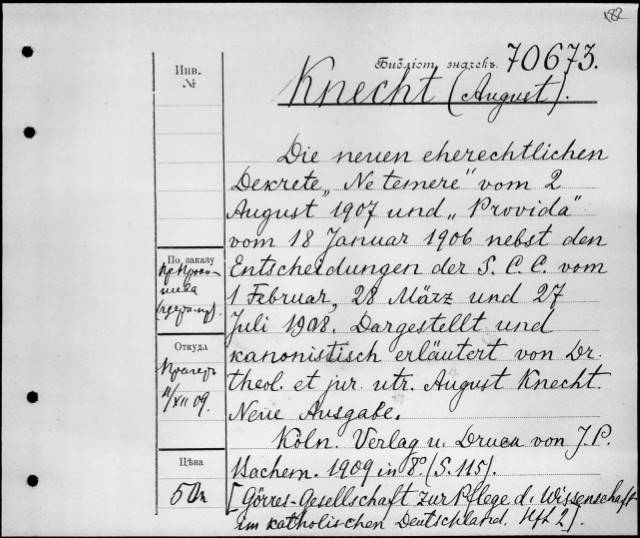 182
Библіот. значекъ. 70673.
Инв.
№
Knecht (August).
Die neuen eherechtlichen
Dekrete „Ne temere" vom 2
August 1907 und „Provida"
vom 18 Januar 1906 nebst den
Entscheidungen der S. C. C. vom
1 Februar, 28 März und 27
Juli 1908. Dargestellt und
kanonistisch erläutert von Dr.
theol. et jur. utr. August Knecht.
Neue Ausgabe.
Köln. Verlag u. Druck von J. P.
Bachem. 1909 in 8° (S. 115).
[Görres-Gesellschaft zur Pflege d. Wissenschaft
im katholischen Deutschland. Hft 2].
По заказу
Откуда
/XII 09.
Цѣна
5